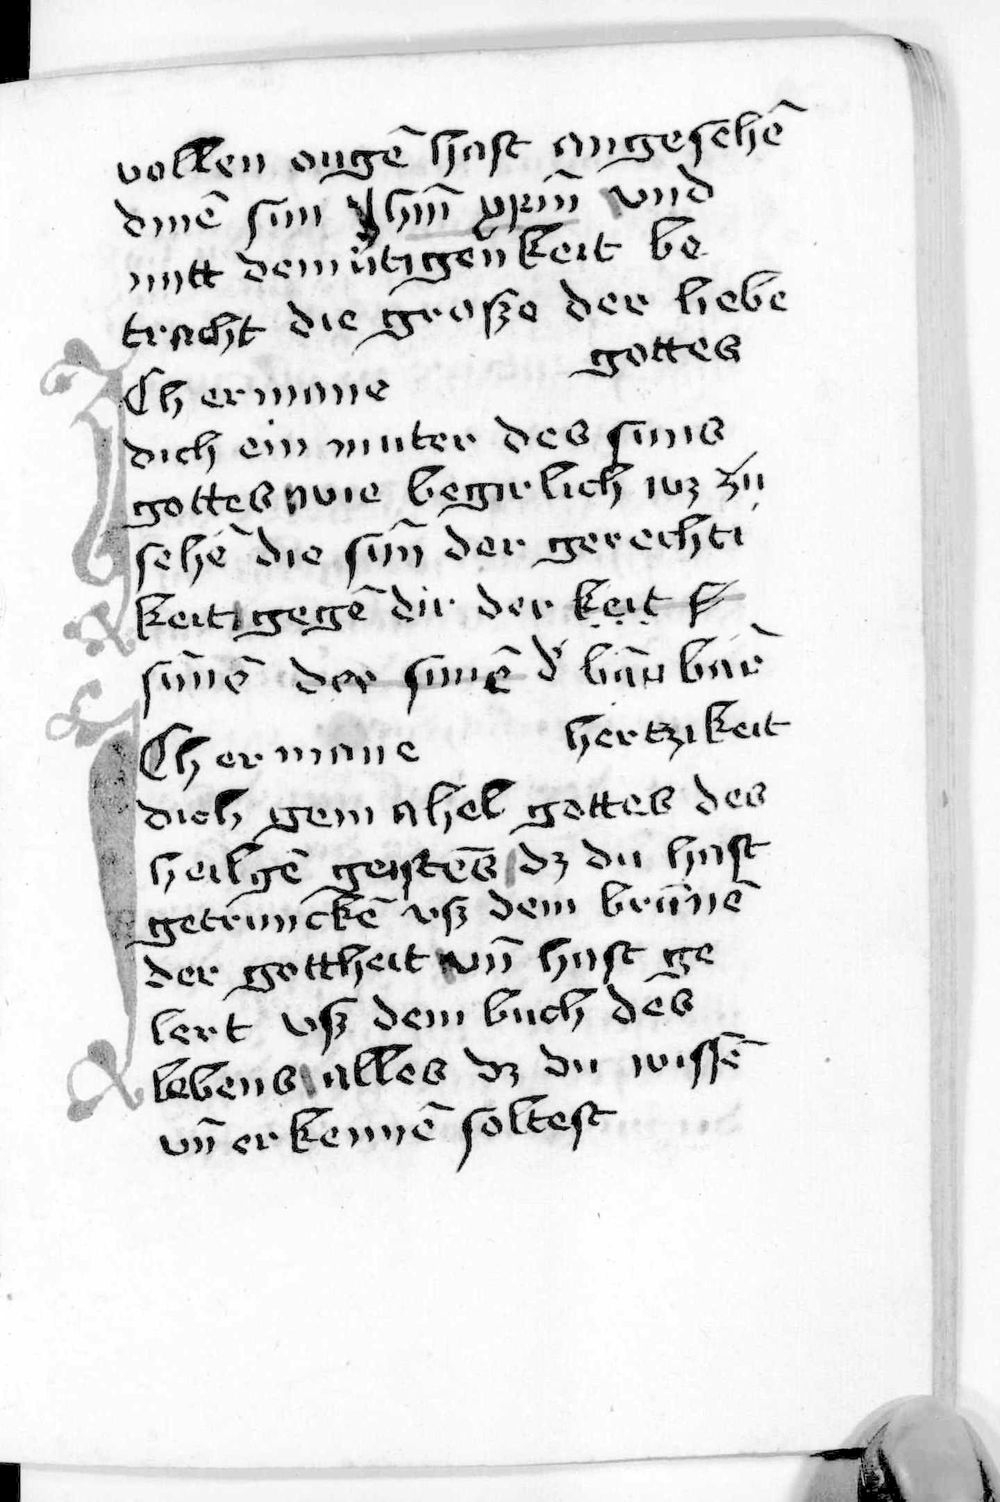 vollen ougē hast angesehē
dinē sun Jhm̄ xpm̄ vnd
mitt demütigen keit be
tracht die grosze der liebe
gottes
Ich ermane
dich ein muter des suns
gottes wie begirlich wz zü
sehē die sun̄ der gerechti
keit gegē dir der keit
sūnē der sunē d'
hertzikeit
Ich ermane
dich gemahel gottes des
heilgē geistes dz du hast
getrunckē vsz dem brūnē
der gottheit vn̄ hast ge
lert vsz dem buch des
lebens alles dz du wissē
vn̄ erkennē soltest